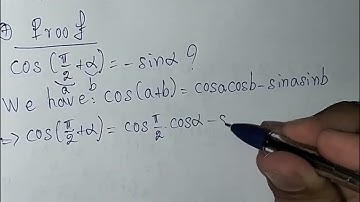 Proof
cos(π/2+α)=-sinα?
a b
We have: cos(a+b)=cosacosb-sinasinb
=>cos(π/2+α)=cosπ/2.cosα-s